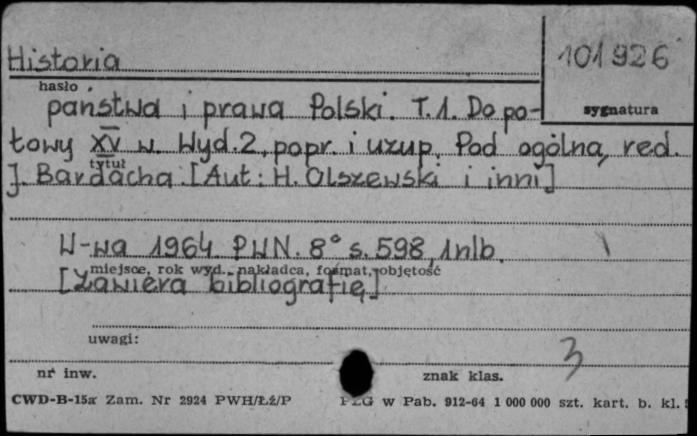 Historia
101926
hasło
sygnatura
państwa i prawa Polski. T.1. Do po-
łowy XV w. Wyd.2, popr. i uzup. Pod ogólną red.
tytuł
J. Bardacha. [Aut: H. Olszewski i inni]
W-wa 1964. PWN. 8° s. 598, 1nlb.
miejsce, rok wyd., nakładca, format, objętość
[Zawiera bibliografię]
uwagi:
3
nr inw.
znak klas.
CWD-B-15a Zam. Nr 2924 PWH/Łź/P
PZG w Pab. 912-64 1 000 000 szt. kart. b. kl.